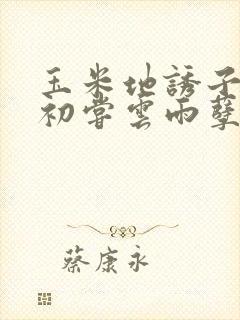 玉米地誘子
初嘗雲雨孽
蔡康永